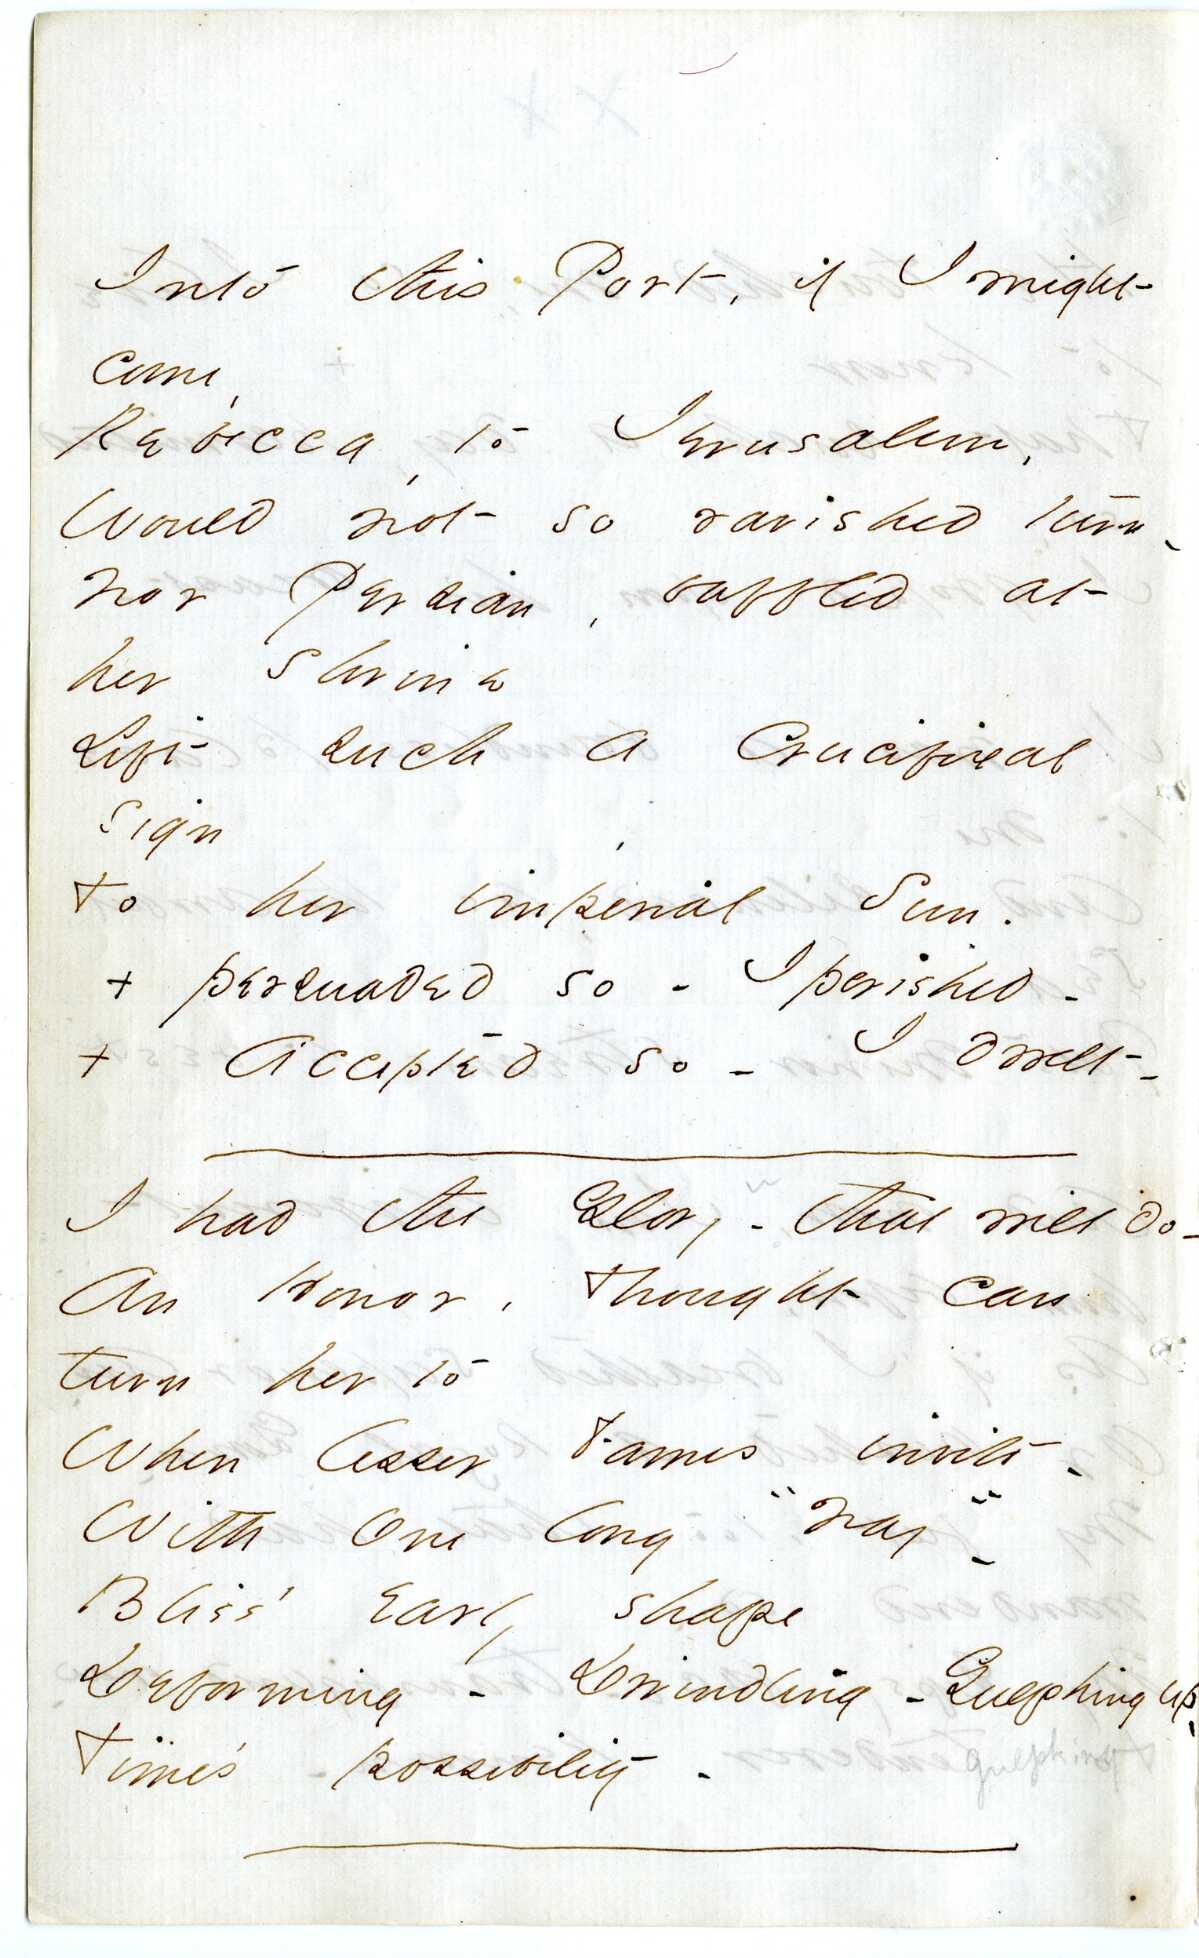 Into this Port, if I might
come,
Rebecca, to Jerusalem,
Would not so ravished turn -
nor Persian, baffled at
her shrine
Lift such a Crucifixal
sign
To her imperial Sun.
+ persuaded so - I perished -
+ Accepted so - I dwelt -
I had the Glory - that will do -
An Honor, Thought can
turn her to
When lesser Fames invite -
With one long "Nay" -
Bliss' early shape
Deforming - Dwindling - Gulphing up
Time's possibility -
gulphing